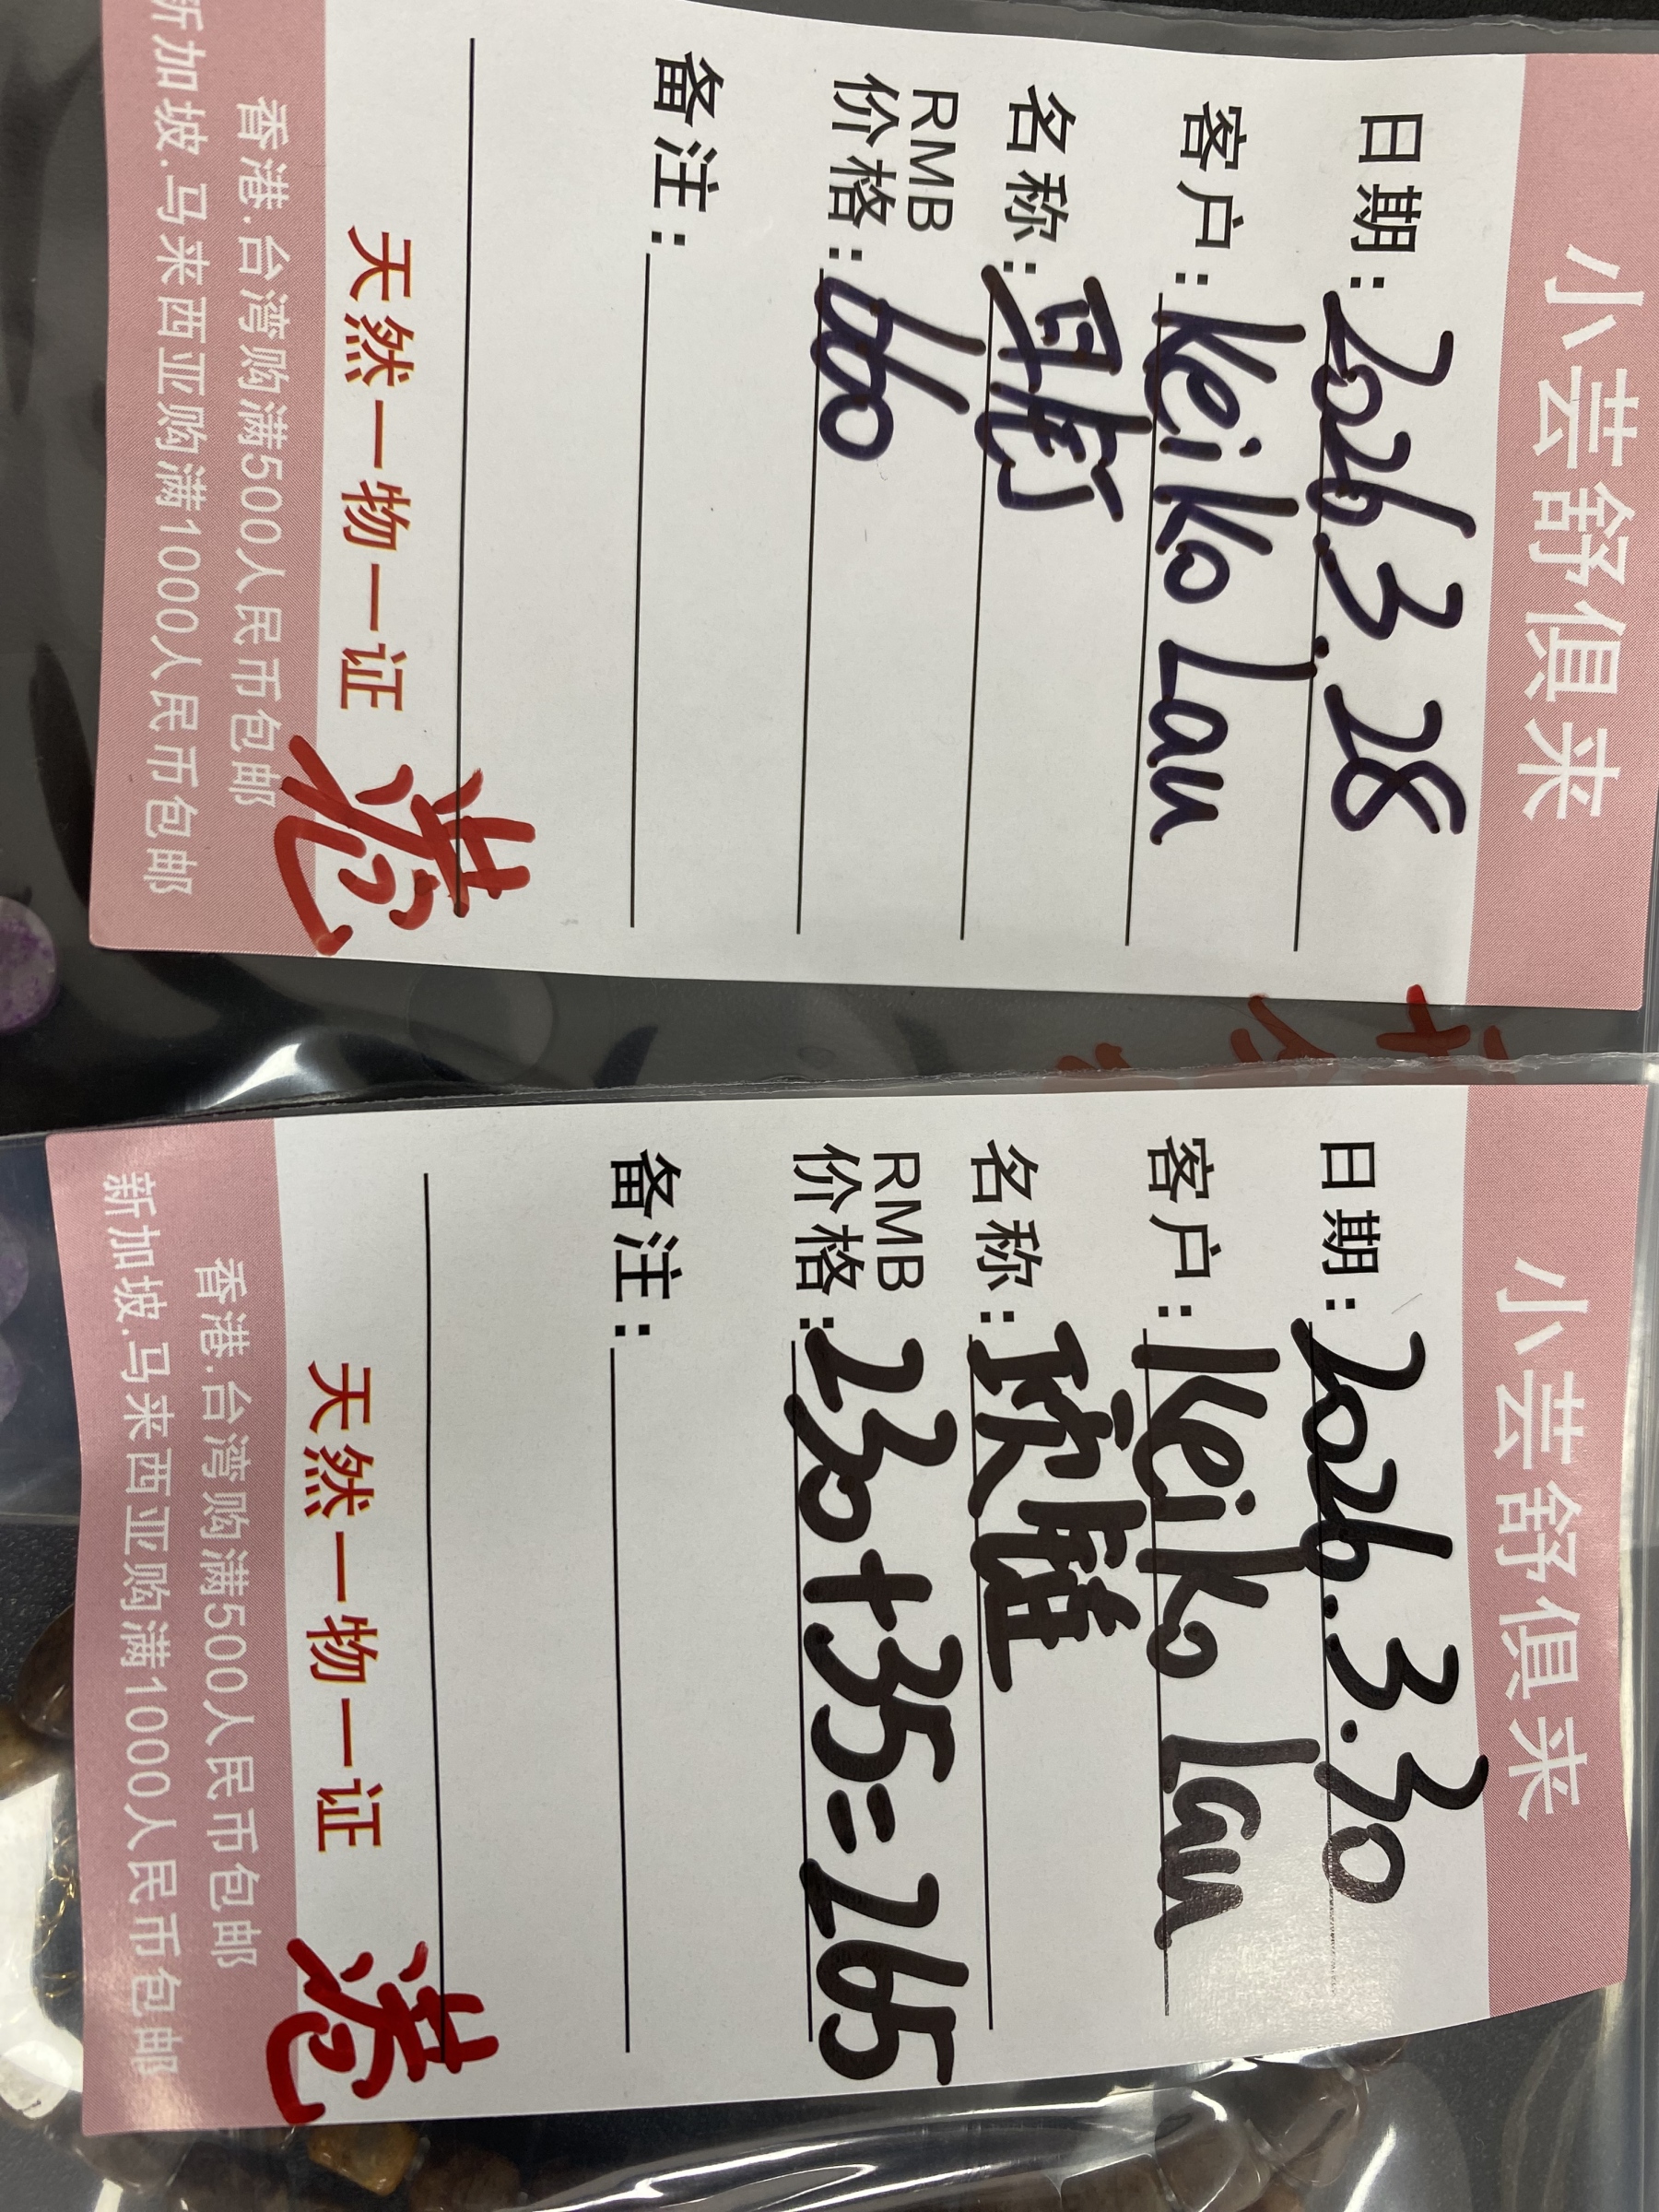 小芸舒俱来
日期：2026.3.28
客户：Keiko Lau
名称：
RMB
价格：660
备注：
天然一物一证
港
香港.台湾购满500人民币包邮
新加坡.马来西亚购满1000人民币包邮
小芸舒俱来
日期：2026.3.30
客户：Keiko Lau
名称：
RMB
价格：230+35=265
备注：
天然一物一证
港
香港.台湾购满500人民币包邮
新加坡.马来西亚购满1000人民币包邮